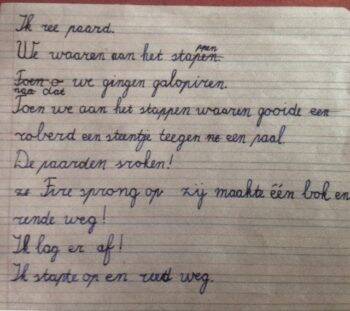 Ik ree paard.
We waaren aan het stappen.
Toen o we gingen galopiren.
nga dat
Toen we aan het stappen waaren gooide een
roberd een steentje teegen ne een paal.
De paarden sroken!
ze Fire sprong op zij maakte één bok en
rende weg!
Ik lag er af!
Ik stapte op en reed weg.